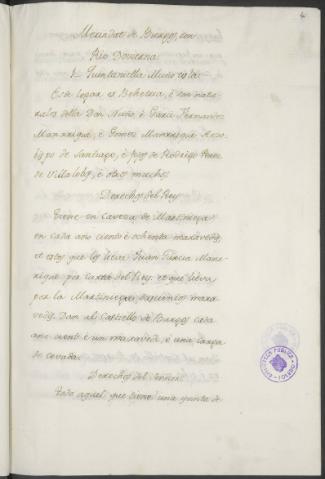 4
Merindat de Burgos, con
Rio Dovierna
1. Quintaniella Muño
Este logar es Behetria, è son natu-
rales della Don Nuño, è Garci Fernandez
Manrrique, è Gomez Manrrique Arzo-
bispo de Santiago, è fijos de Rodrigo Perez
de Villalobos, è otros muchos.
Derechos del Rey
Tiene en caveza de Martiniega
en cada año ciento è ochenta maravedis,
et estos que los lieva Juan Garcia Man-
rrique por carta del Rey. et que lieva
por la Martiniega, maravedis. Dan al Castiello de Burgos cada
año ciento è un maravedi, è una carga
de cevada.
Derechos del Señor.
Todo aquel que tiene una yunta de
BIBLIOTECA PUBLICA